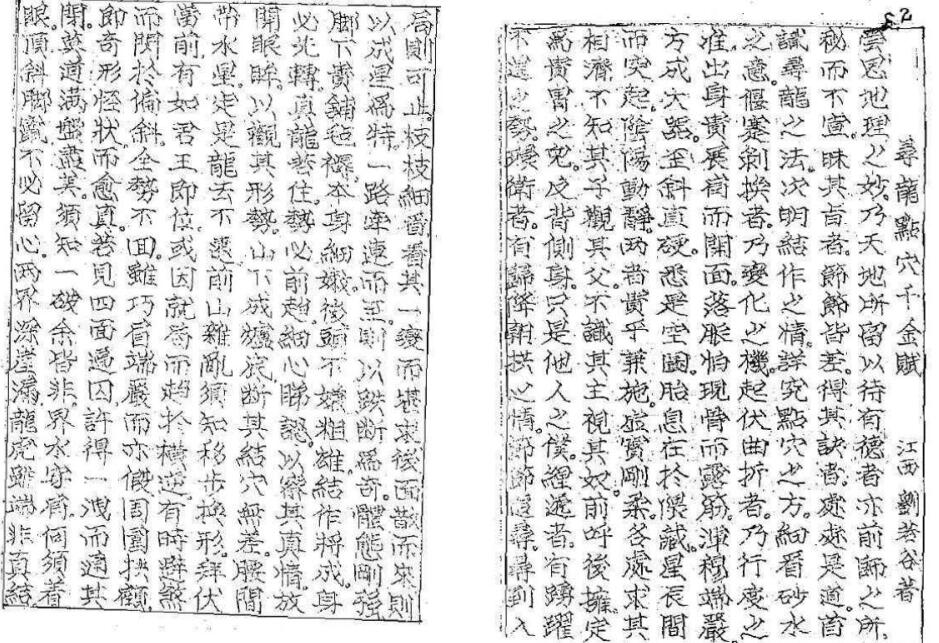 52
尋龍點穴千金賦 江西 劉若谷著
雲思地理之妙乃天地所留以待有德者亦前師之所
秘而不宣昧其旨者節節皆差得其訣者處處是道首
識尋龍之法次明結作之情詳究點穴之方細看砂水
之意偃蹇剝換者乃變化之機起伏曲折者乃行度之
准出身貴展肩而開面落脈怕現脊而露筋淨穆端嚴
方成大器歪斜直硬悉是空圖胎息在於隈藏星辰間
而突起陰陽動靜兩者貴乎兼施虛實剛柔各處求其
相濟不知其子觀其父不識其主視其奴前呼後擁定
為貴胄之兒反背側身只是他人之僕纏遞者有踴躍
不進之勢環衛者有歸降朝拱之情節節追尋尋到入
局則可止枝枝細看看其一變而堪求後面散而來則
以成星為特一路牽連而至則以跌斷為奇體態剛強
脚下貴鋪毡褥本身細嫩後頭不嫌粗雄結作將成身
必先轉真龍若住勢必前趨細心睇認以察其真情放
開眼眸以觀其形勢山下成爐底斷其結穴無差腰間
帶水星定是龍去不遠前山雜亂須知移步換形拜伏
當前有如君王即位或因就局而趨於橫逆有時避煞
而閃於偏斜全勢不回雖巧眉端嚴而亦假周圍拱顧
即奇形怪狀而愈真若見四面遍囚許得一洩而適其
閉莫道滿盤盡美須知一破余皆非界水穿肩何須着
眼頂斜脚竄不必留心兩界深崖漏龍虎雖端非真結